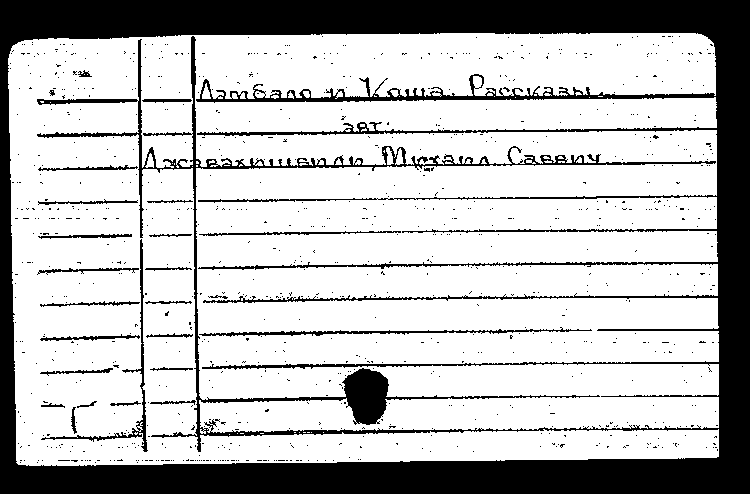 Ламбало и Каша. Рассказы.
авт:
Джавахишвили, Михаил Саввич